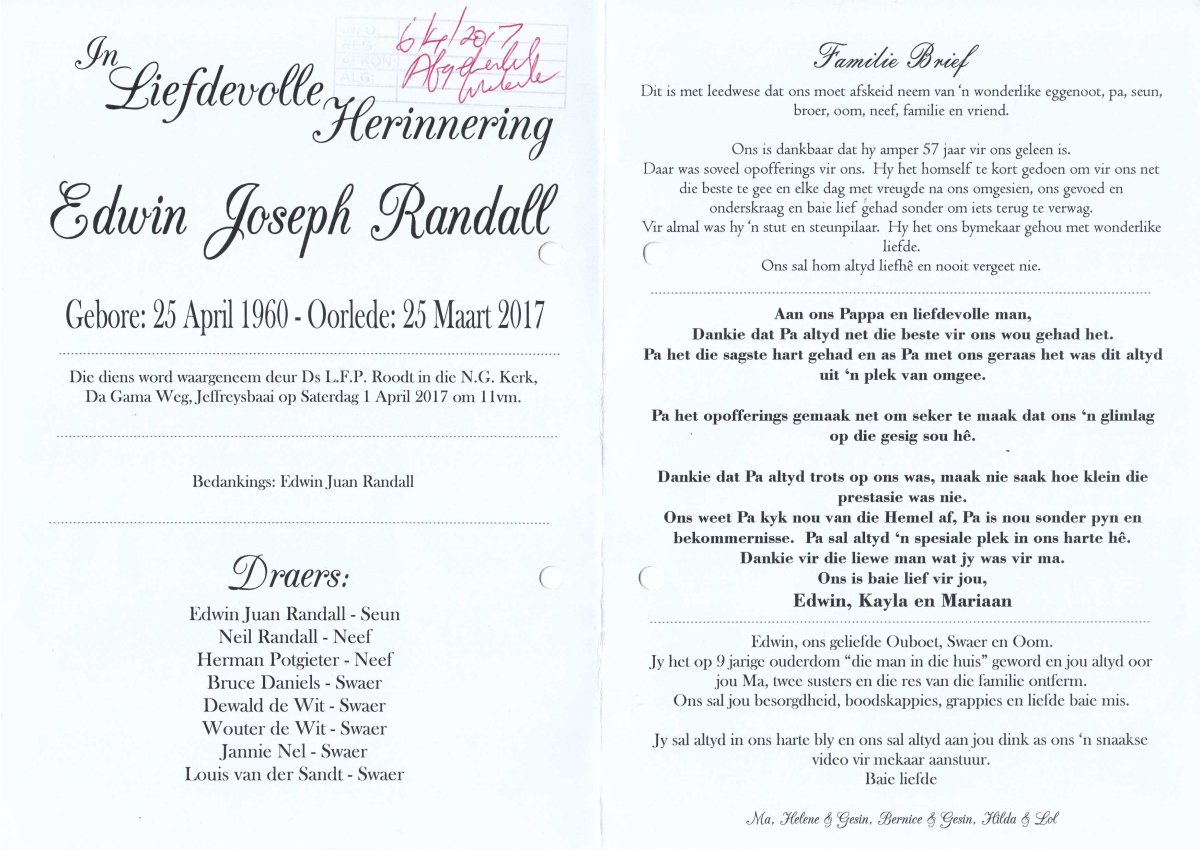 In
Liefdevolle
Herinnering
INFO.
REG.
AFKON.
ALG.
6/4/2017
Edwin Joseph Randall
Gebore: 25 April 1960 - Oorlede: 25 Maart 2017
Die diens word waargeneem deur Ds L.F.P. Roodt in die N.G. Kerk,
Da Gama Weg, Jeffreysbaai op Saterdag 1 April 2017 om 11vm.
Bedankings: Edwin Juan Randall
Draers:
Edwin Juan Randall - Seun
Neil Randall - Neef
Herman Potgieter - Neef
Bruce Daniels - Swaer
Dewald de Wit - Swaer
Wouter de Wit - Swaer
Jannie Nel - Swaer
Louis van der Sandt - Swaer
Familie Brief
Dit is met leedwese dat ons moet afskeid neem van ‘n wonderlike eggenoot, pa, seun,
broer, oom, neef, familie en vriend.
Ons is dankbaar dat hy amper 57 jaar vir ons geleen is.
Daar was soveel opofferings vir ons. Hy het homself te kort gedoen om vir ons net
die beste te gee en elke dag met vreugde na ons omgesien, ons gevoed en
onderskraag en baie lief gehad sonder om iets terug te verwag.
Vir almal was hy ‘n stut en steunpilaar. Hy het ons bymekaar gehou met wonderlike
liefde.
Ons sal hom altyd liefhê en nooit vergeet nie.
Aan ons Pappa en liefdevolle man,
Dankie dat Pa altyd net die beste vir ons wou gehad het.
Pa het die sagste hart gehad en as Pa met ons geraas het was dit altyd
uit ‘n plek van omgee.
Pa het opofferings gemaak net om seker te maak dat ons ‘n glimlag
op die gesig sou hê.
Dankie dat Pa altyd trots op ons was, maak nie saak hoe klein die
prestasie was nie.
Ons weet Pa kyk nou van die Hemel af, Pa is nou sonder pyn en
bekommernisse. Pa sal altyd ‘n spesiale plek in ons harte hê.
Dankie vir die liewe man wat jy was vir ma.
Ons is baie lief vir jou,
Edwin, Kayla en Mariaan
Edwin, ons geliefde Ouboet, Swaer en Oom.
Jy het op 9 jarige ouderdom “die man in die huis” geword en jou altyd oor
jou Ma, twee susters en die res van die familie ontferm.
Ons sal jou besorgdheid, boodskappies, grappies en liefde baie mis.
Jy sal altyd in ons harte bly en ons sal altyd aan jou dink as ons ‘n snaakse
video vir mekaar aanstuur.
Baie liefde
Ma, Helene & Gesin, Bernice & Gesin, Hilda & Lol